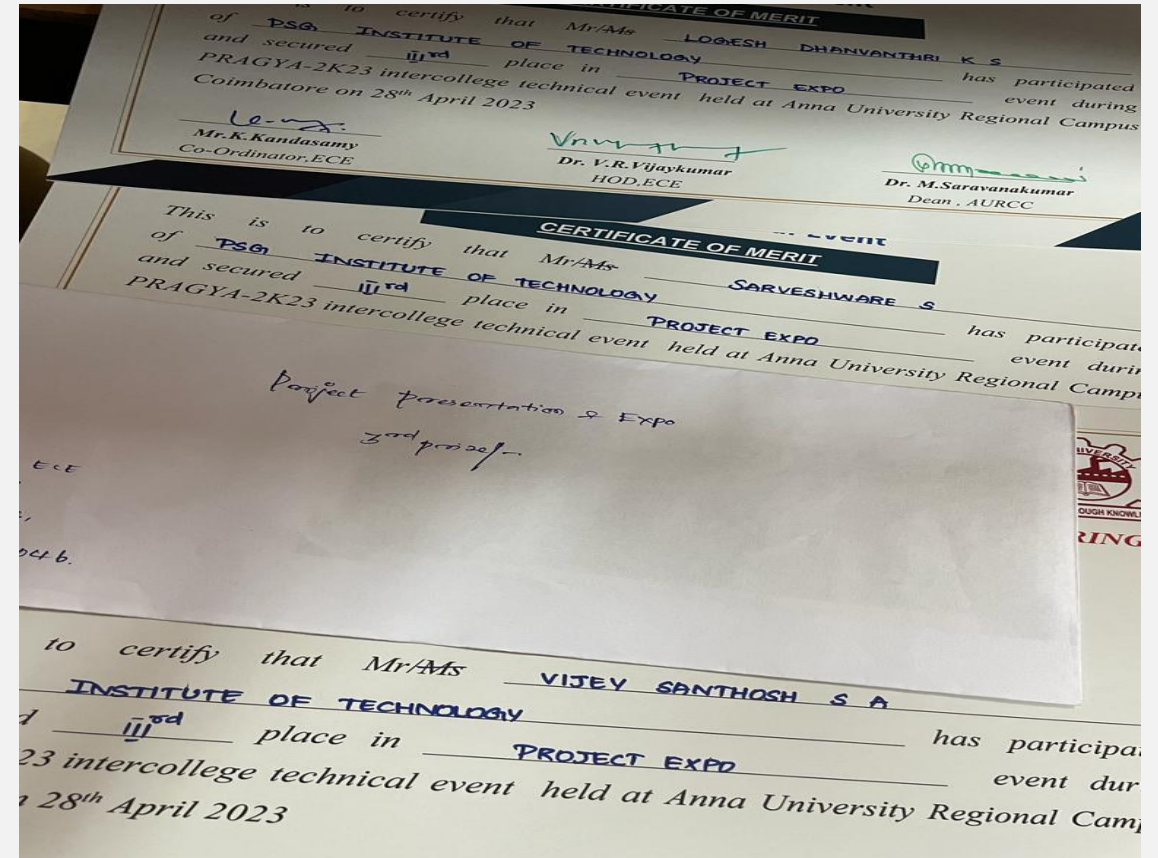 CERTIFICATE OF MERIT
to certify that Mr/Ms LOGESH DHANVANTHRI K S
of PSG INSTITUTE OF TECHNOLOGY has participated
and secured IIIrd place in PROJECT EXPO event during
PRAGYA-2K23 intercollege technical event held at Anna University Regional Campus
Coimbatore on 28th April 2023
Mr.K.Kandasamy
Co-Ordinator,ECE
Dr. V.R.Vijaykumar
HOD,ECE
Dr. M.Saravanakumar
Dean, AURCC
CERTIFICATE OF MERIT
This is to certify that Mr/Ms SARVESHWARE S
of PSG INSTITUTE OF TECHNOLOGY has participate
and secured IIIrd place in PROJECT EXPO event durin
PRAGYA-2K23 intercollege technical event held at Anna University Regional Campu
Project presentation & Expo
3rd prize/-
ECE
RING
to certify that Mr/Ms VIJEY SANTHOSH S A
INSTITUTE OF TECHNOLOGY has participa
IIIrd place in PROJECT EXPO event dur
23 intercollege technical event held at Anna University Regional Camp
28th April 2023